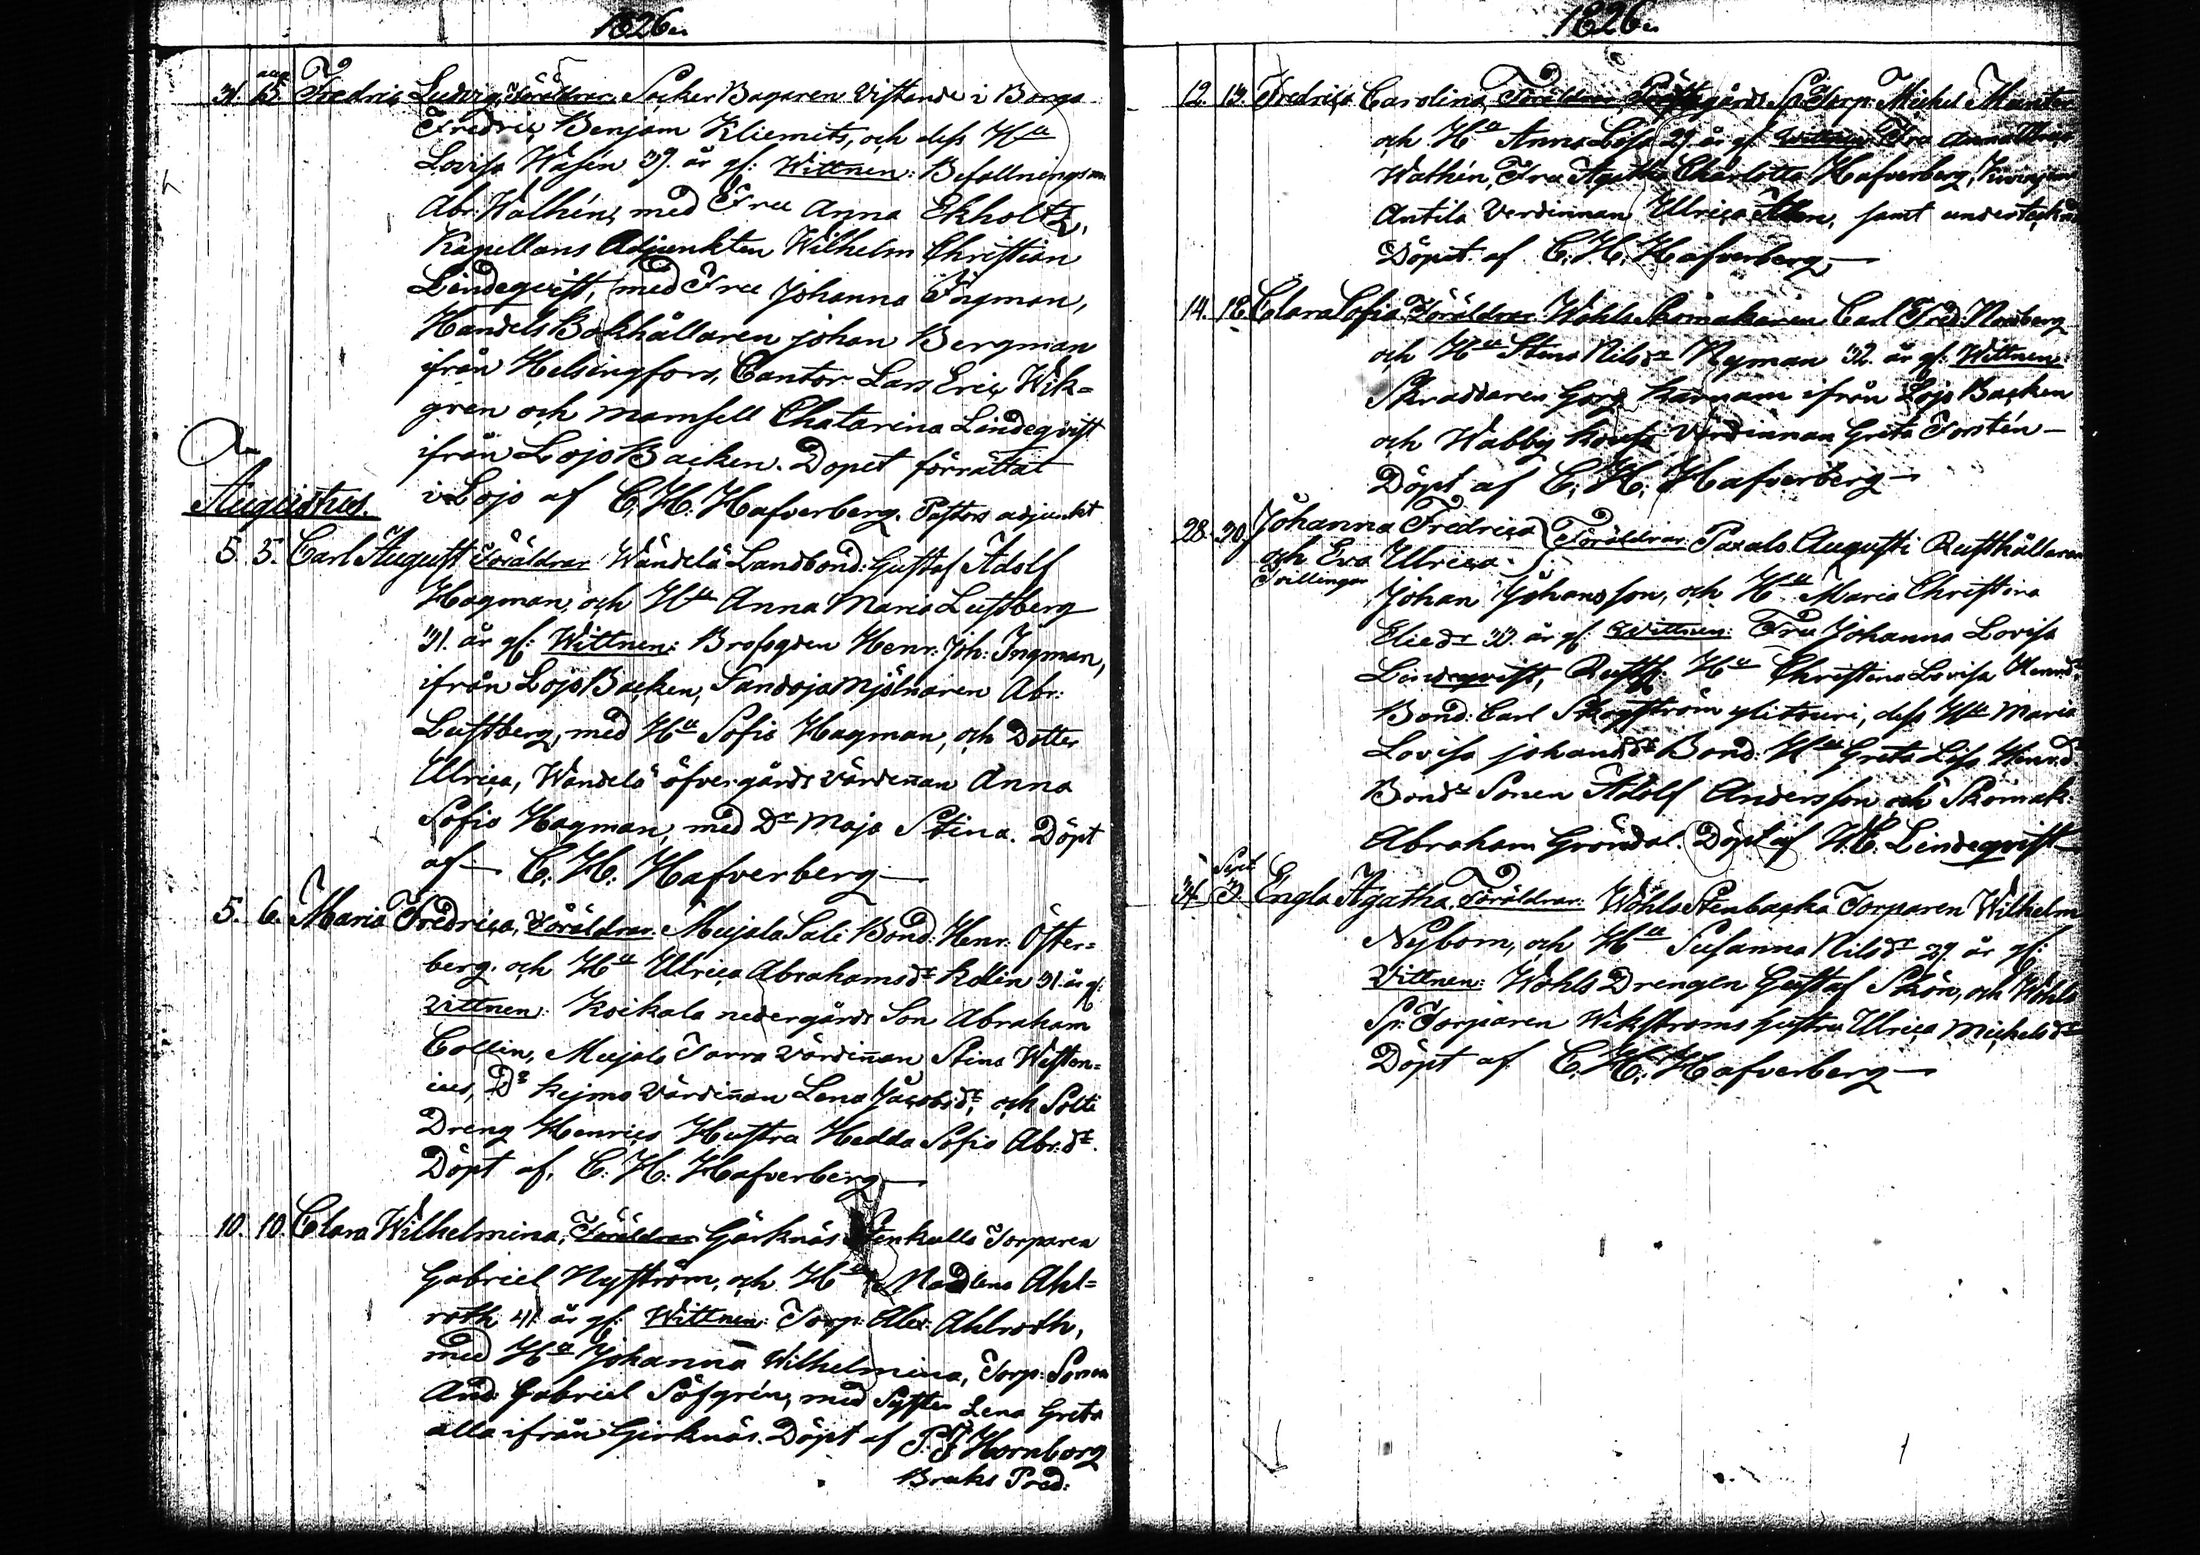 1826
31. aug 13. Fredric Ludvig, Föräldrar Socker Bagaren Vistande i Borgo
Fredric Benjam Kliemits, och dess H:u
Lovisa Wasin 39. år gl: Wittnen: Befallningsm
Abr. Walhén, med Fru Anna Ekholtz,
Kapellans Adjunkten Wilhelm Christian
Lindeqvist, med Fru Johanna Ingman,
Handels Bokhållaren Johan Bergman
ifrån Helsingfors, Cantor Lars Eric Wik=
gren och mamsell Chatarina Lindeqvist
ifrån Lojo Backen. Dopet förrättat
i Lojo af C. H. Hafverberg. Pastors adjunkt
Augustus.
5. 5. Carl August Föräldrar Wändelä Landbond: Gustaf Adolf
Hagman, och H:u Anna Maria Lustberg
31. år gl: Wittnen: Brofogden Henr: Joh: Ingman,
ifrån Lojo Backen, Sandoja Mjölnaren Abr:
Lustberg, med H:u Sofia Hagman, och Dotter
Ulrica, Wändelä öfvergårds värdinnan Anna
Sofia Hagman, med D:r Maja Stina. Döpt
af C: H: Hafverberg
5. 6. Maria Fredrica, Föräldrar Mujala Sali Bond: Henr: Öster=
berg. och H:u Ulrica Abrahamsd:r Kollin 31. år gl:
Vittnen: Koikala nedergårds Son Abraham
Collin, Mujala Tarra Värdinnan Stina Westen=
ius, D:o Kejmo Värdinnan Lena Jacobsd:r, och Solti
Dreng Henrics Hustru Hedda Sofia Abr:d:r.
Döpt af, C: H: Hafverberg
10. 10. Clara Wilhelmina, Föräldrar Gärknäs Stenkulla Torparen
Gabriel Nyström, och H:u Madlena Ahl=
roth 41 år gl: Wittnen: Torp: Alex: Ahlroth,
med H:u Johanna Wilhelmina, Torp: Sonen
And: Gabriel Söfgrén, med Syster Lena Greta
alla ifrån Girknäs. Döpt af P. J Hornborg
Bruks Pred:
1826
12. 13. Fredrica Carolina, Föräldrar Sp: Torp: Michel
och H:u Anna Lisa 29. år gl: Wittnen: Fru Anna
Wathén, Fru Agatha Charlotta Hafverberg,
Antila Verdinnan Ulrica samt undertecknad
Döpt af C: H: Hafverberg
14. 18. Clara Sofia, Föräldrar Wohls Skomakaren Carl Fred: Norberg
och H:u Stina Nilsd:r Nyman 32. år gl: Wittnen:
Skraddaren Georg ifrån Lojo Backen
och Wabby Värdinnan Greta Forstén
Döpt af C: H: Hafverberg
28. 30. Johanna Fredrica Föräldrar: Paxals Augusti Rusthållaren
och Eva Ulrica.
Tvillingar
Johan Johansson, och H:u Maria Christina
Elied:r 33. år gl: Wittnen: Fru Johanna Lovisa
Lindeqvist, Rusth: H:u Christina Lovisa Henrd:r
Bond: Carl Skogström dess H:u Maria
Lovisa Johansd:r Bond: H:u Greta Lisa Henr:d:r
Bond: Sonen Adolf Andersson och Skomak:
Abraham Gröndal. Döpt af W: C: Lindeqvist
31. Sept. 3. Engla Agatha, Föräldrar: Wohls Stenbacka Torparen Wilhelm
Nybom, och H:u Susanna Nilsd:r 29. år gl:
Vittnen: Wohls Drengen Gustaf Skön, och Wohls
Sp: Torparen Wikströms hustru Ulrica Michelsd:r
Döpt af C: H: Hafverberg